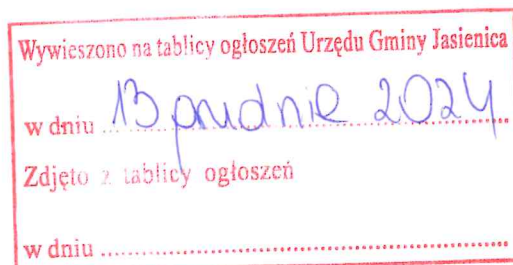 Wywieszono na tablicy ogłoszeń Urzędu Gminy Jasienica
w dniu 13 grudnia 2024
Zdjęto z tablicy ogłoszeń
w dniu ........................................